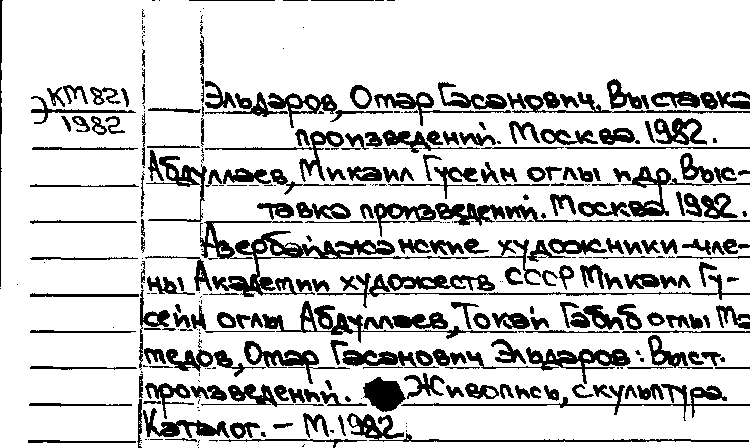 КМ 821
Э 1982
Эльдаров, Омар Гасанович. Выставка
произведений. Москва. 1982.
Абдуллаев, Микаил Гусейн оглы и др. Выс-
тавка произведений. Москва. 1982.
Азербайджанские художники-чле-
ны Академии художеств СССР Микаил Гу-
сейн оглы Абдуллаев, Токай Габиб оглы Ма
медов, Омар Гасанович Эльдаров: Выст.
произведений. Живопись, скульптура.
Каталог. – М. 1982.